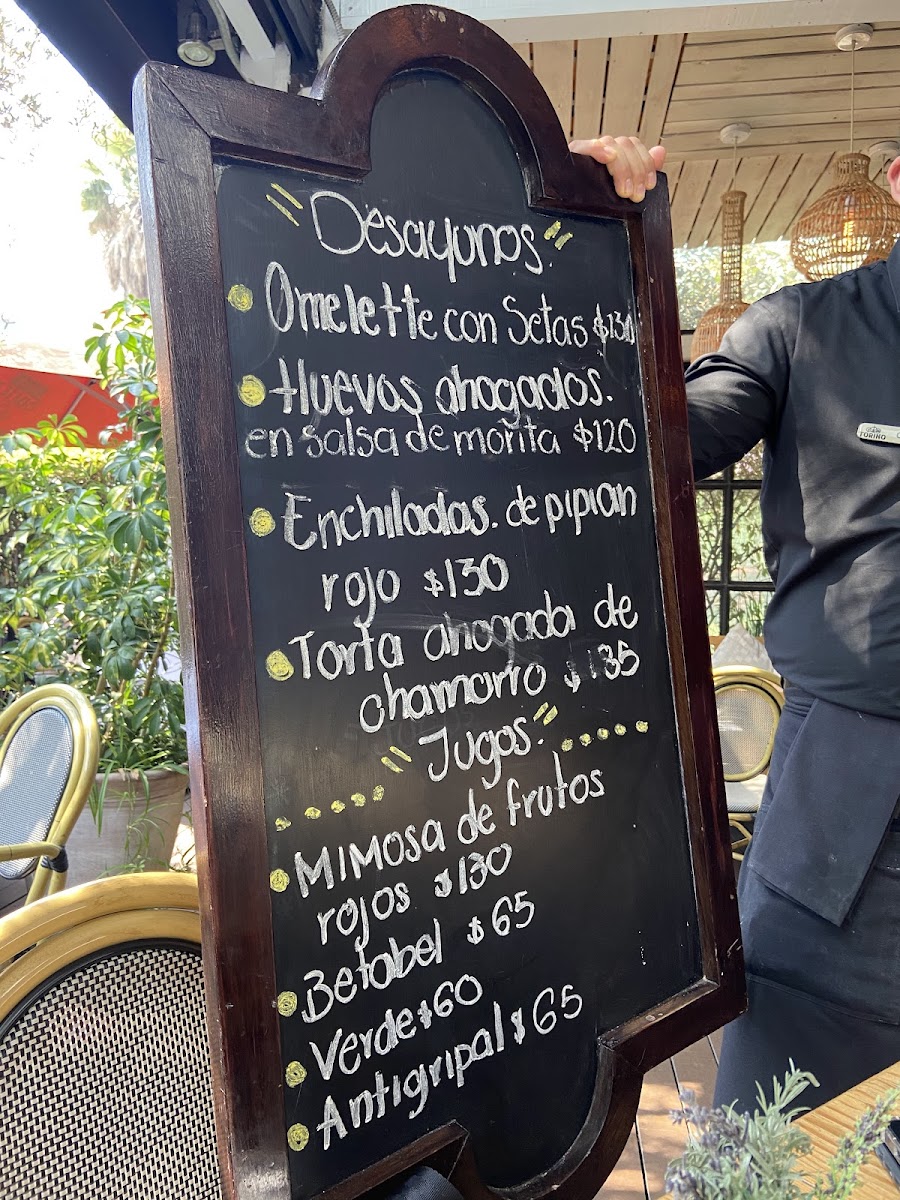 Desayunos.
Omelette con Setas $130
Huevos ahogados.
en salsa de morita $120
Enchiladas. de pipian
rojo $130
Torta ahogada de
chamorro $135
Jugos.
MIMOSA de frutos
rojos $130
Betabel $65
Verde $60
Antigripal $65
TORINO